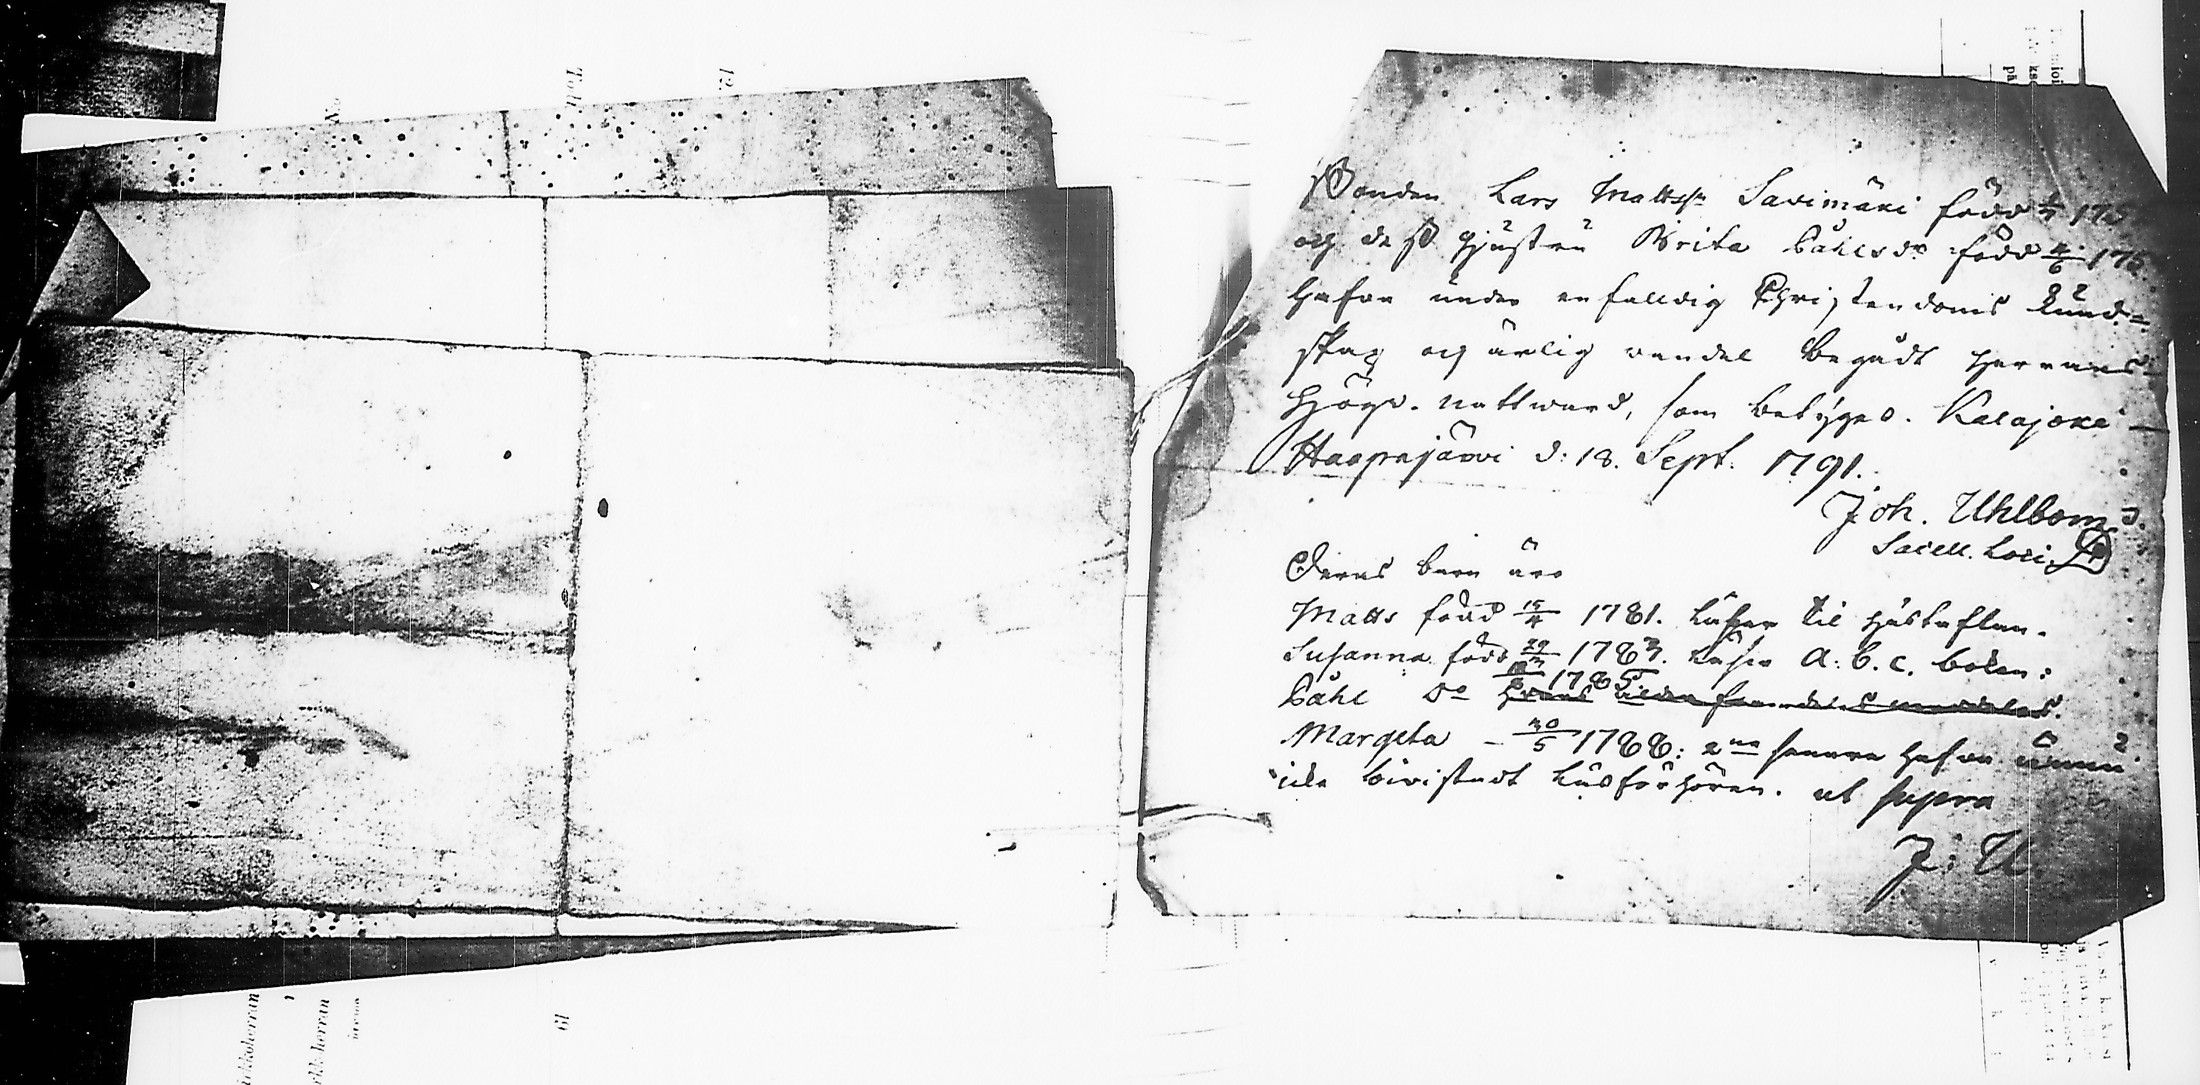 Bonden Lars Mattss:n Savimäki född 17
och dess hustru Brita Påhlsdr född 4/6 176
hafva under enfalldig Christendoms kund=
skap och ärlig vandel begådt Herrans
Högv. nattward, som betygas. Kalajoki
Haapajärvi d: 18. Sept. 1791.
Joh. Uhlbom
Sacell. Loci.
Deras barn äro
Matts född 15/4 1781. Läser til Hustaflan.
Susanna född 29/3 1783. Läser A. b. c. boken:
Påhl do 1785
Margeta – 30/5 1788: 2ne senare hafva ännu
icke bivistadt Läsförhören. ut supra
J: U.
12.
19